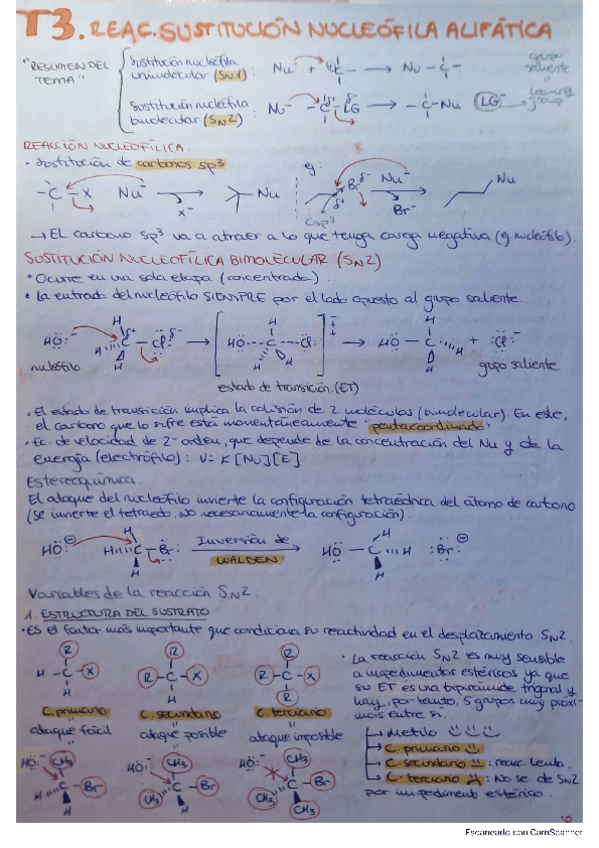 T3. REAC. SUSTITUCIÓN NUCLEÓFILA ALIFÁTICA
"RESUMEN DEL TEMA"
Sustitución nucleófila unimolecular (SN1): Nu⁻ + C⁺ → Nu-C-
grupo saliente
Sustitución nucleófila bimolecular (SN2): Nu⁻ C-LG → -C-Nu LG⁻ → Leaving group
REACCIÓN NUCLEOFÍLICA.
· Sustitución de carbonos sp³
eg:
-C-X Nu⁻ → Nu
X⁻
Br δ⁻ Nu⁻ → Nu
δ⁺ Br⁻
Csp³
→ El carbono sp³ va a atraer a lo que tenga carga negativa (eg nucleófilo).
SUSTITUCIÓN NUCLEOFÍLICA BIMOLECULAR (SN2)
· Ocurre en una sola etapa (concentrada).
· La entrada del nucleófilo SIEMPRE por el lado opuesto al grupo saliente.
HÖ:⁻ H H H C δ⁺ - Cl δ⁻ → [HO---C---Cl]‡ → HO-C H H H + :Cl:⁻
nucleófilo
grupo saliente
estado de transición. (ET)
· El estado de transición implica la colisión de 2 moléculas (bimolecular). En este,
el carbono que lo sufre está momentáneamente "pentacoordinado"
· Ec. de velocidad de 2º orden, que depende de la concentración del Nu y de la
energía (electrófilo): V = K [Nu][E]
Estereoquímica.
El ataque del nucleófilo invierte la configuración tetraédrica del átomo de carbono
(se invierte el tetraedro. No necesariamente la configuración).
HO:⁻ H H H C-Br: Inversión de WALDEN → HO-C H H H :Br:⁻
Variables de la reacción SN2.
1. ESTRUCTURA DEL SUSTRATO
· Es el factor más importante que condiciona su reactividad en el desplazamiento SN2.
R R R
H-C-X R-C-X R-C-X
H H R
C. primario C. secundario C. terciario
ataque fácil ataque posible ataque imposible
HO:⁻ CH₃ HO:⁻ CH₃ HO:⁻ CH₃
H C Br CH₃ C Br CH₃ C Br
H H CH₃
· La reacción SN2 es muy sensible
a impedimentos estéricos ya que
su ET es una bipirámide trigonal y
hay, por tanto, 5 grupos muy próxi-
mos entre sí.
→ Metilo
→ C. primario
→ C. secundario : reac. lenta.
→ C. terciario : No se da SN2
por impedimento estérico.
Escaneado con CamScanner